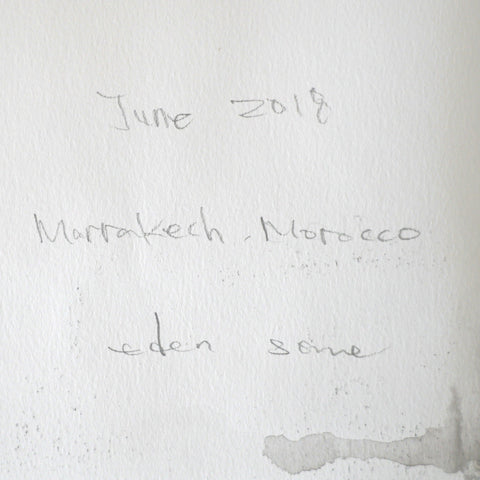 June 2018
Marrakech. Morocco
eden some